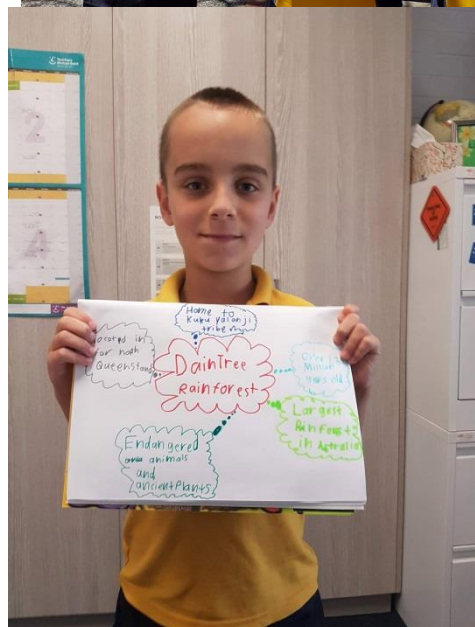 Home to
Kuku Yalanji
tribe
ocated in
far north
Queensland
DainTree
Rainforest
Over
Million
years old
Largest
Rainforest
in Astralia
Endangered
animals
and
ancient Plants
2
4